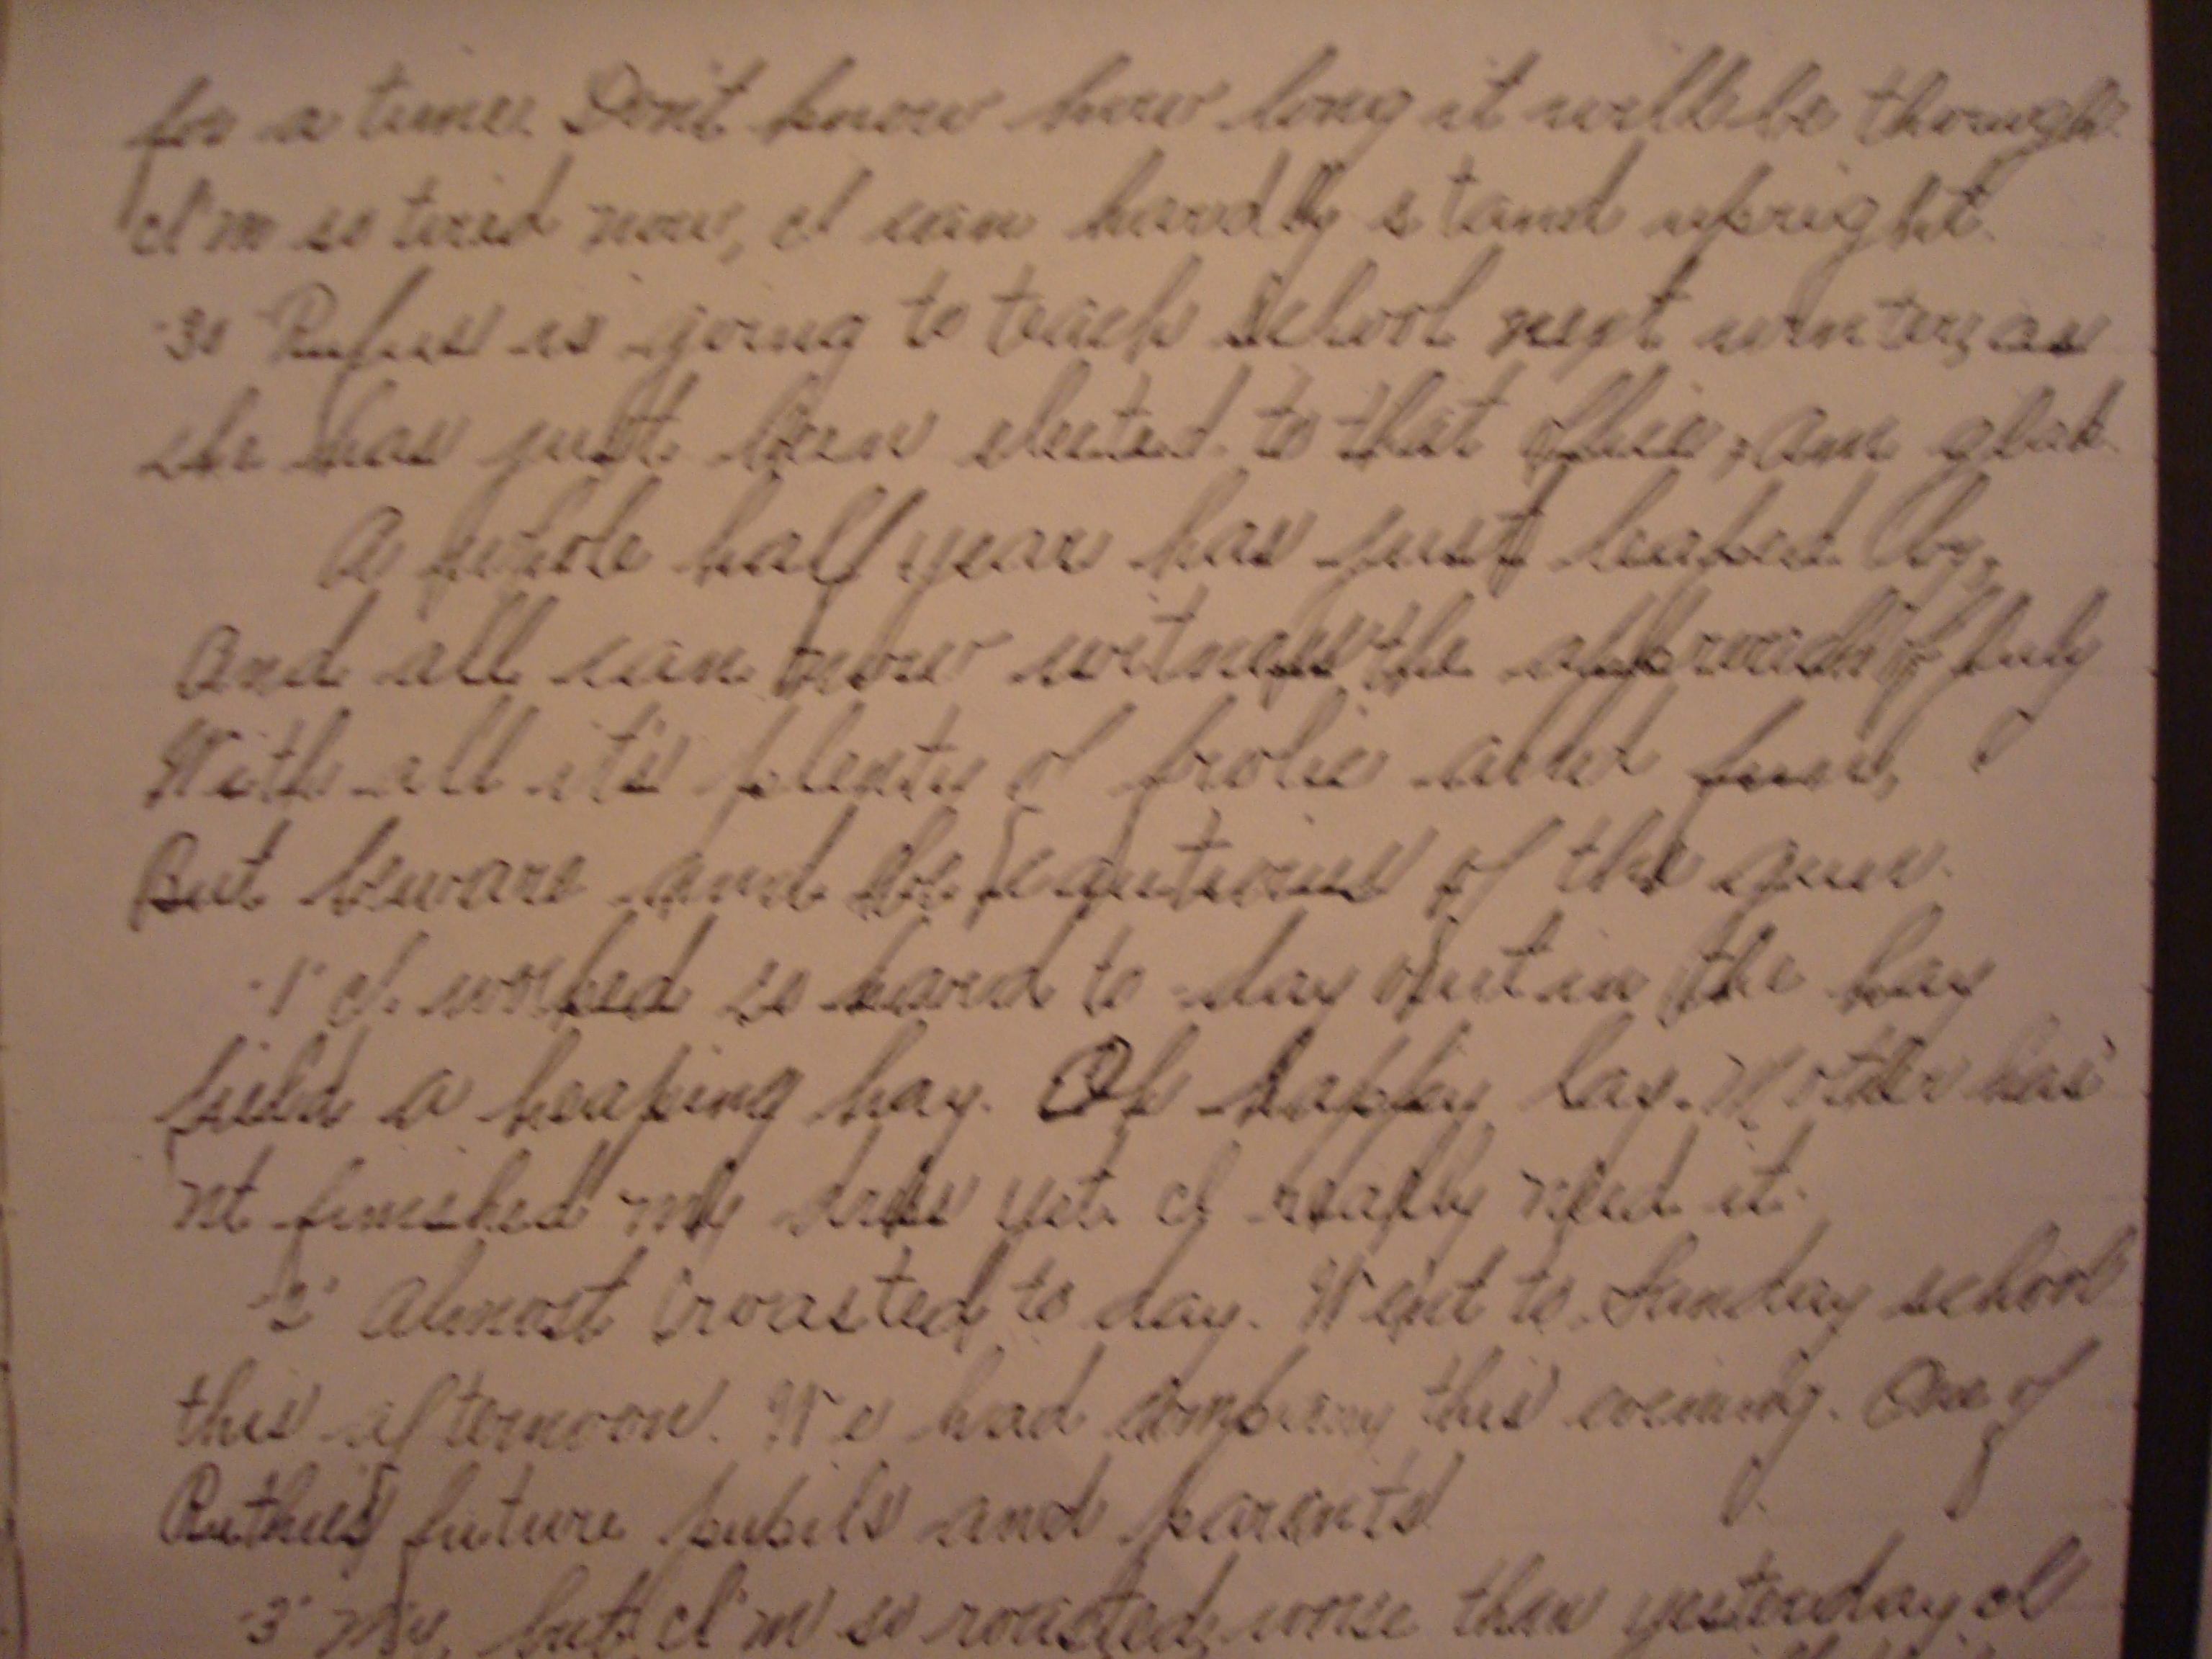 for a time. Don't know how long it will be though.
I'm so tired now, I can hardly stand upright.
"30" Rufus is going to teach school next winter, as
she has just been elected to that office, am glad.
A whole half year has just leaped by,
And all can now witness the approach of July
With all it's plenty of frolic and fun,
But beware and be cautious of the gun.
"1" I worked so hard to-day out in the hay
field a heaping hay. Oh happy lay. Mother has
nt finished my dress yet. I really need it.
"2" Almost roasted to day. Went to Sunday school
this afternoon. We had company this evening. One of
Ruthie's future pupils and parents
"3" My, but I'm so roasted, worse than yesterday. I